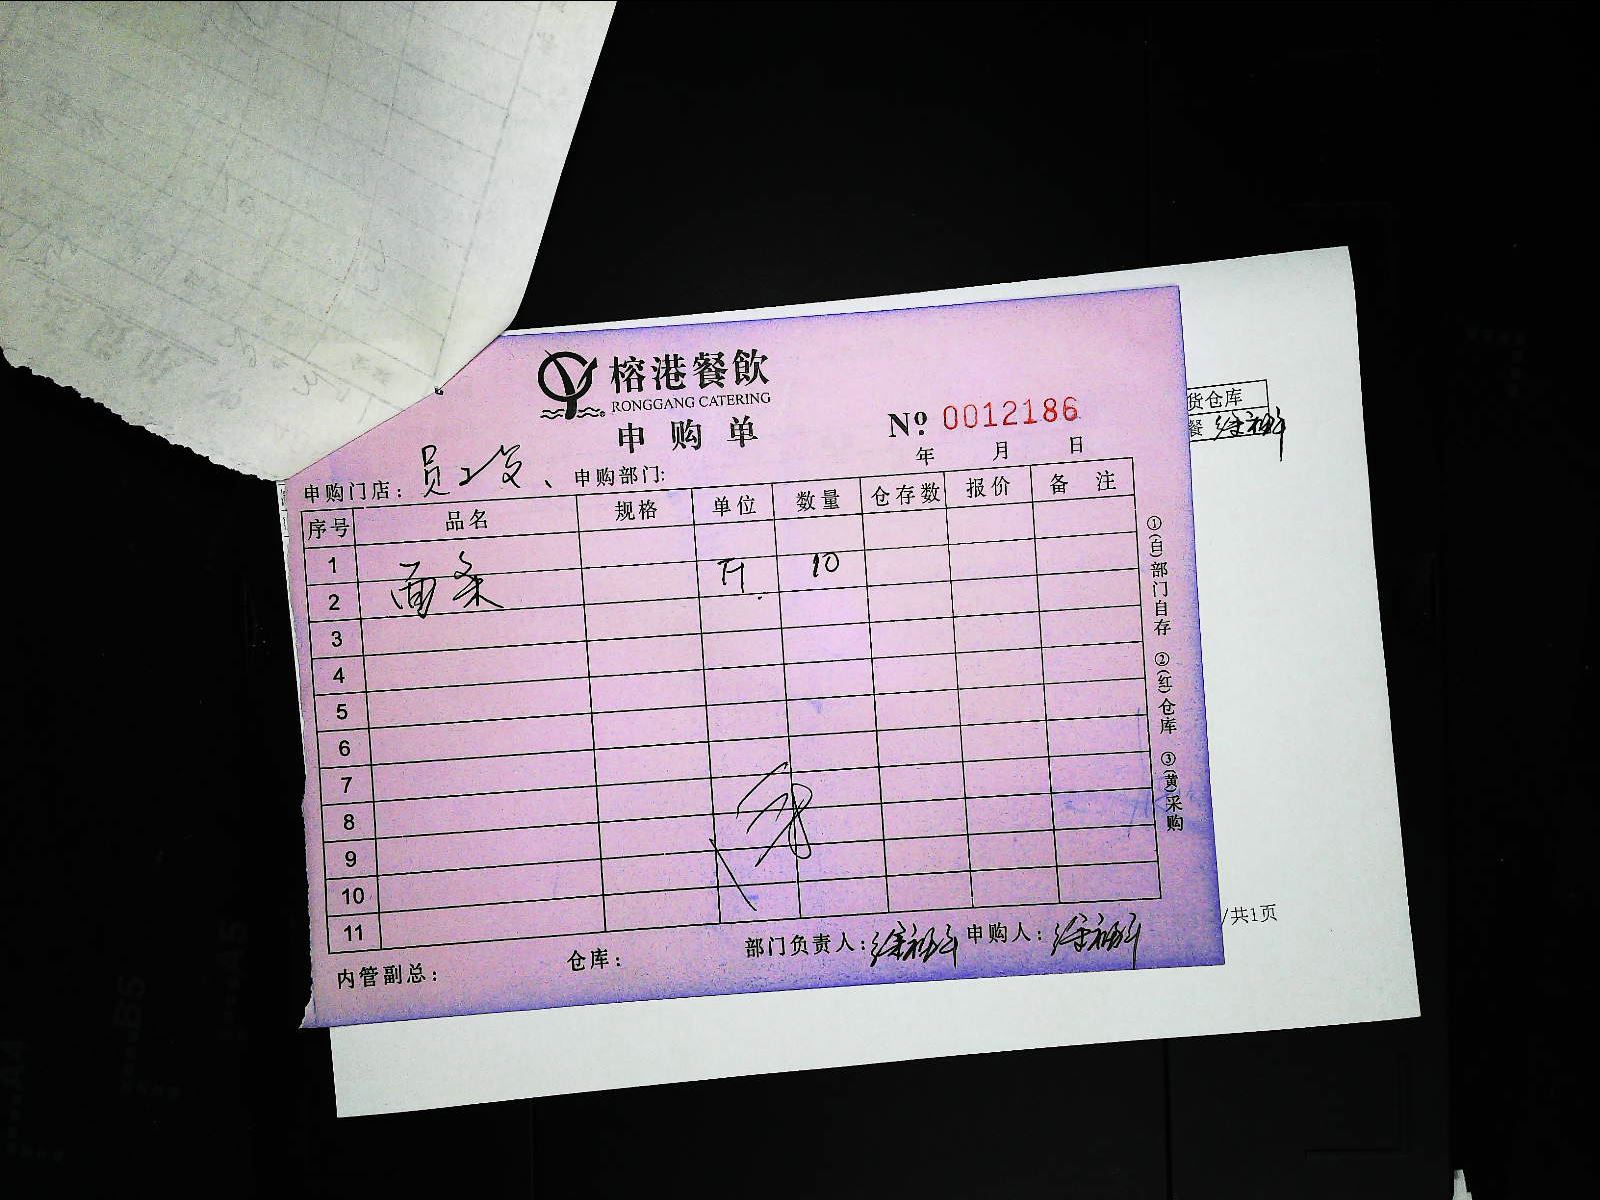 榕港餐飲
RONGGANG CATERING
申购单
№ 0012186
年 月 日
申购门店：员工餐、申购部门:
序号 品名 规格 单位 数量 仓存数 报价 备注
1 面条 斤 10
2
3
4
5
6
7
8
9
10
11
内管副总： 仓库： 部门负责人： 申购人：
①(白)部门自存 ②(红)仓库 ③(黄)采购
货仓库
餐
/共1页